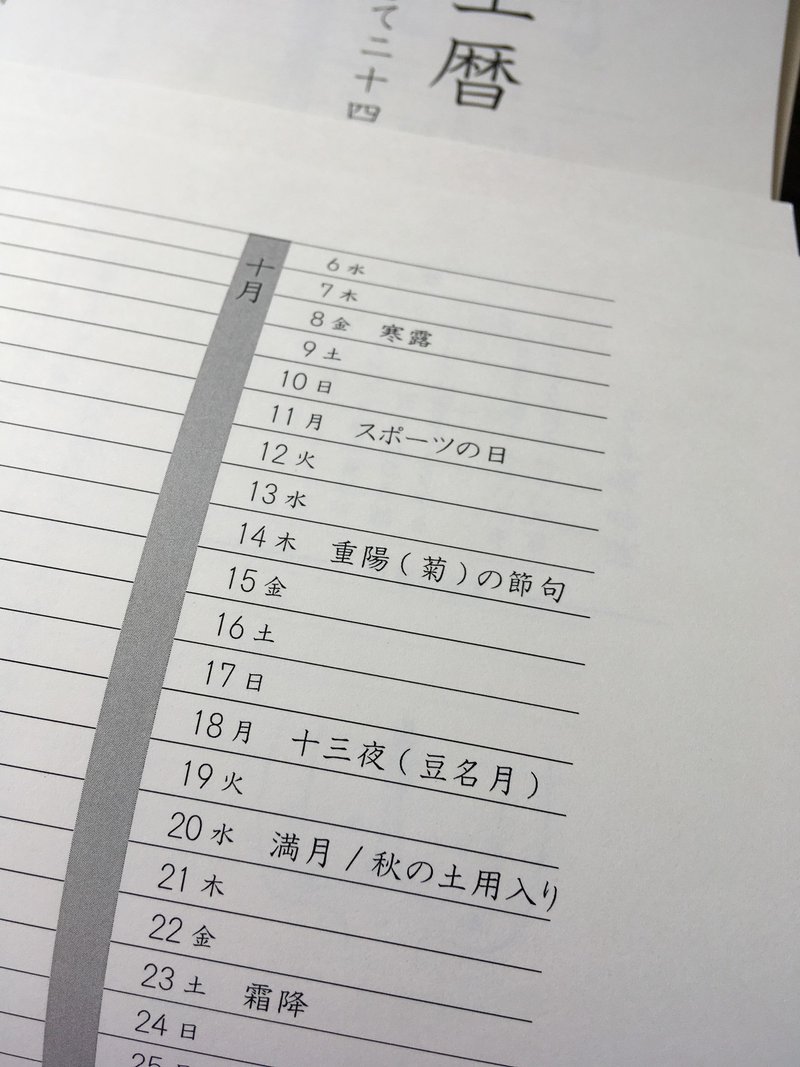 暦
て二十四
十月
6 水
7 木
8 金 寒露
9 土
10 日
11 月 スポーツの日
12 火
13 水
14 木 重陽(菊)の節句
15 金
16 土
17 日
18 月 十三夜(豆名月)
19 火
20 水 満月/秋の土用入り
21 木
22 金
23 土 霜降
24 日
25